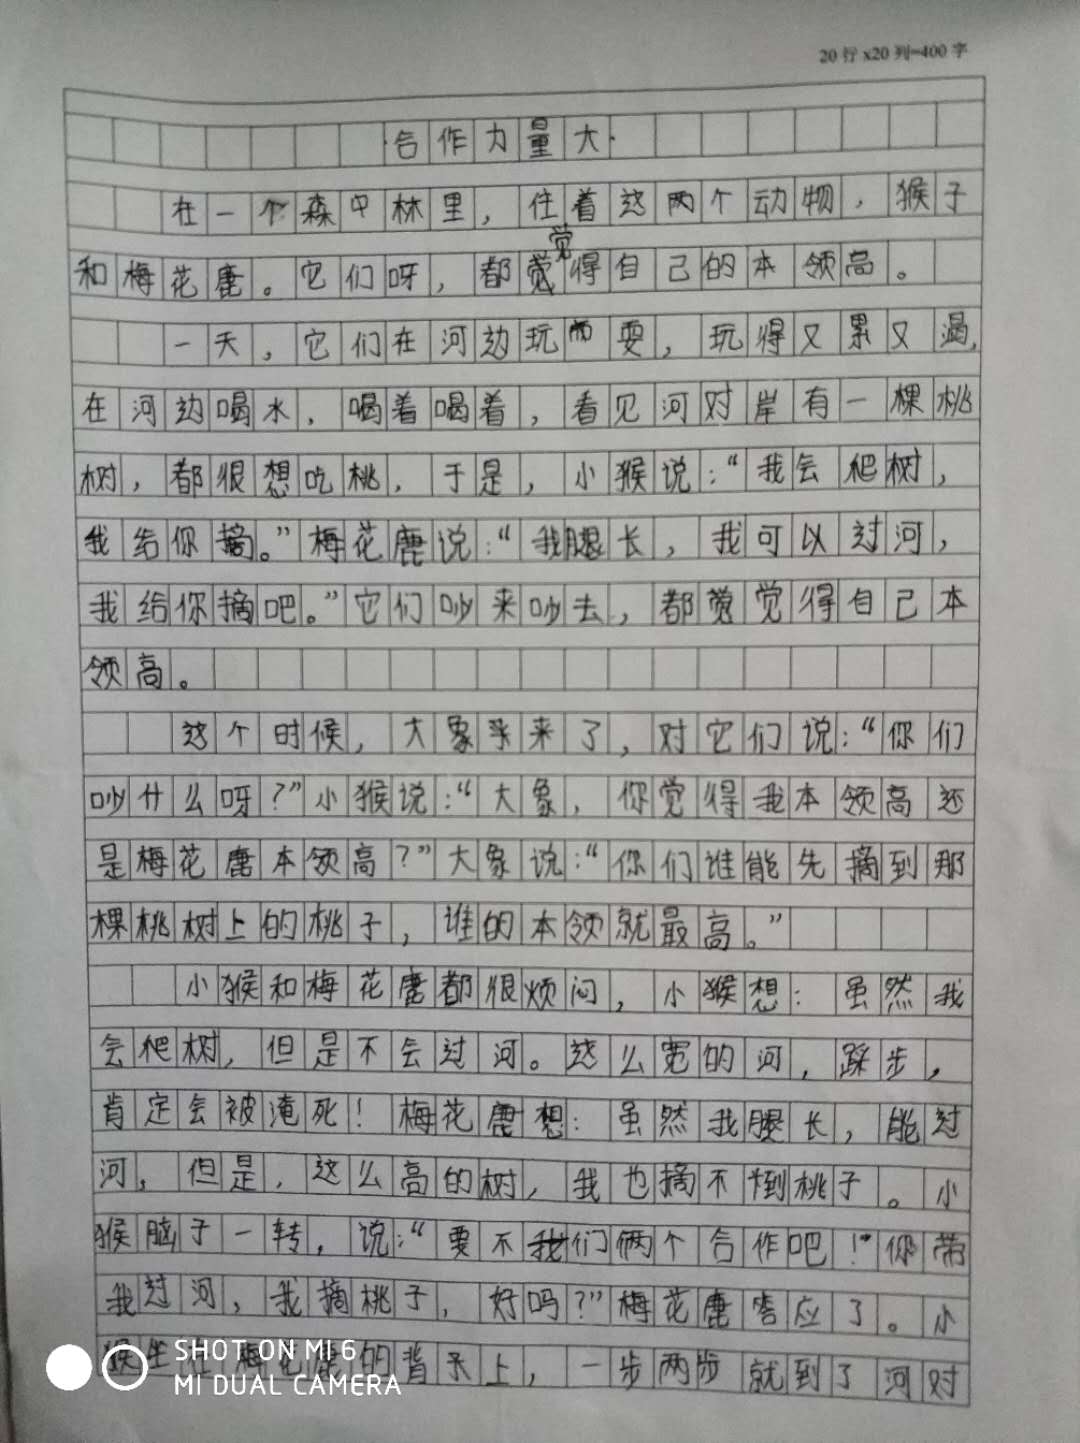 20行x20列=400字
合作力量大
在一个森中林里，住着这两个动物，猴子
觉
和梅花鹿。它们呀，都觉得自己的本领高。
一天，它们在河边玩而耍，玩得又累又渴，
在河边喝水，喝着喝着，看见河对岸有一棵桃
树，都很想吃桃，于是，小猴说：“我会爬树，
我给你摘。”梅花鹿说：“我腿长，我可以过河，
我给你摘吧。”它们吵来吵去，都觉得自己本
领高。
这个时候，大象来了，对它们说：“你们
吵什么呀？”小猴说：“大象，你觉得我本领高还
是梅花鹿本领高？”大象说：“你们谁能先摘到那
棵桃树上的桃子，谁的本领就最高。”
小猴和梅花鹿都很烦闷，小猴想：虽然我
会爬树，但是不会过河。这么宽的河，踩步，
肯定会被淹死！梅花鹿想：虽然我腿长，能过
河，但是，这么高的树，我也摘不到桃子。小
猴脑子一转，说：“要不我们俩个合作吧！”你带
我过河，我摘桃子，好吗？”梅花鹿答应了。小
猴坐在梅花鹿的背上，一步两步就到了河对
SHOT ON MI 6
MI DUAL CAMERA